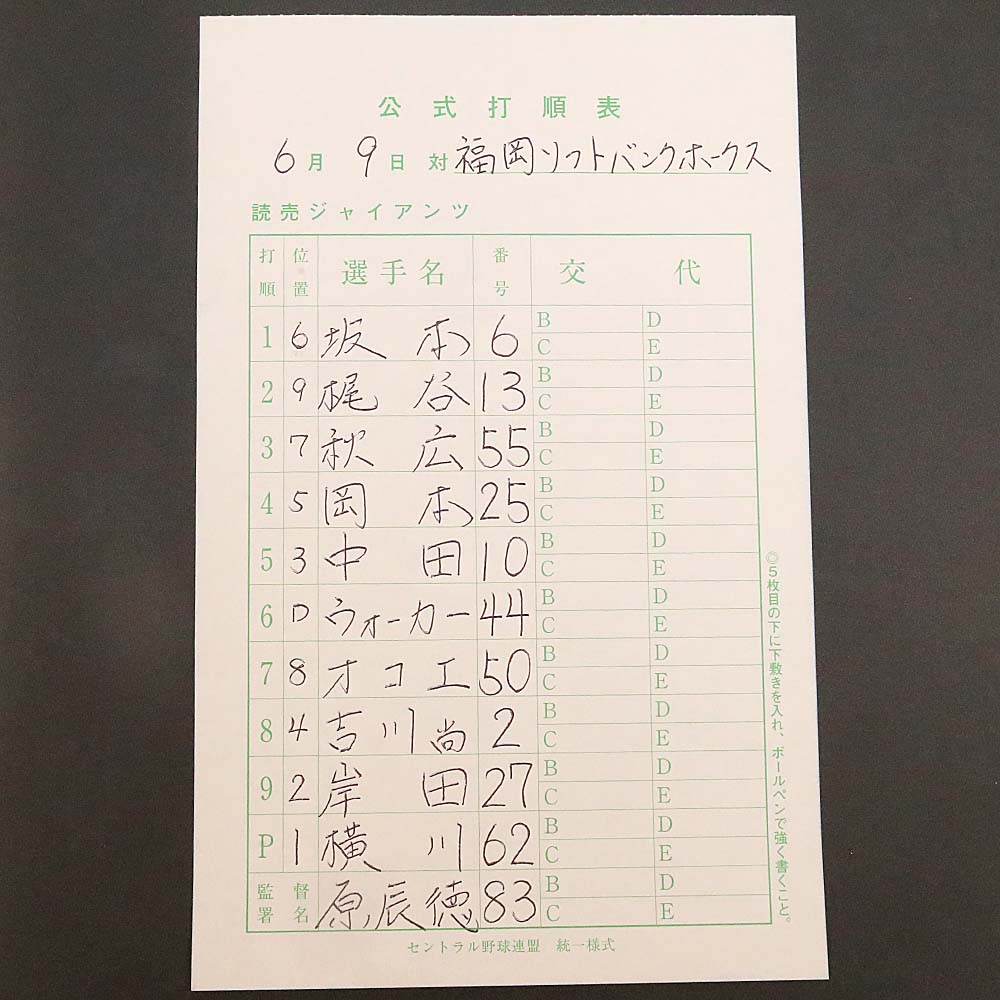 公式打順表
6月 9日 対 福岡ソフトバンクホークス
読売ジャイアンツ
打順 位置 選手名 番号 交代
1 6 坂本 6 B D C E
2 9 梶谷 13 B D C E
3 7 秋広 55 B D C E
4 5 岡本 25 B D C E
5 3 中田 10 B D C E
6 D ウォーカー 44 B D C E
7 8 オコエ 50 B D C E
8 4 吉川尚 2 B D C E
9 2 岸田 27 B D C E
P 1 横川 62 B D C E
監督署名 原辰徳 83 B D C E
セントラル野球連盟 統一様式
◎5枚目の下に下敷きを入れ、ボールペンで強く書くこと。